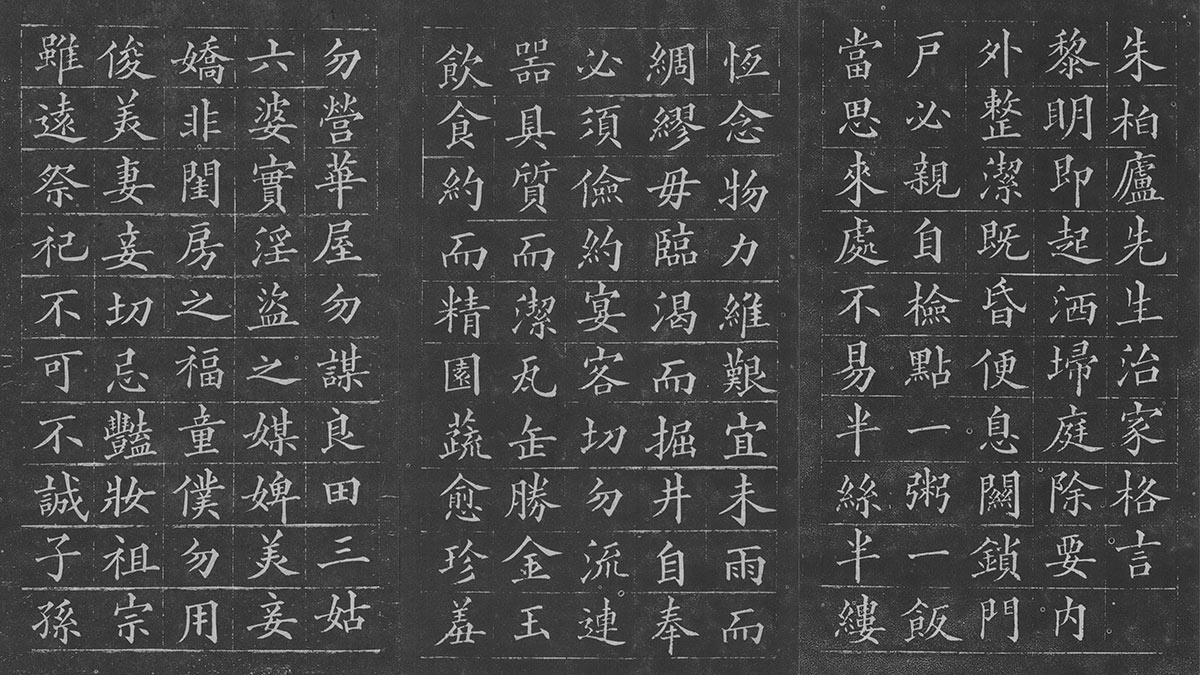 朱柏廬先生治家格言
黎明即起洒埽庭除要內
外整潔既昏便息關鎖門
戶必親自檢點一粥一飯
當思來處不易半絲半縷
恆念物力維艱宜未雨而
綢繆毋臨渴而掘井自奉
必須儉約宴客切勿流連
器具質而潔瓦缶勝金玉
飲食約而精園蔬愈珍羞
勿營華屋勿謀良田三姑
六婆實淫盜之媒婢美妾
嬌非閨房之福童僕勿用
俊美妻妾切忌豔妝祖宗
雖遠祭祀不可不誠子孫